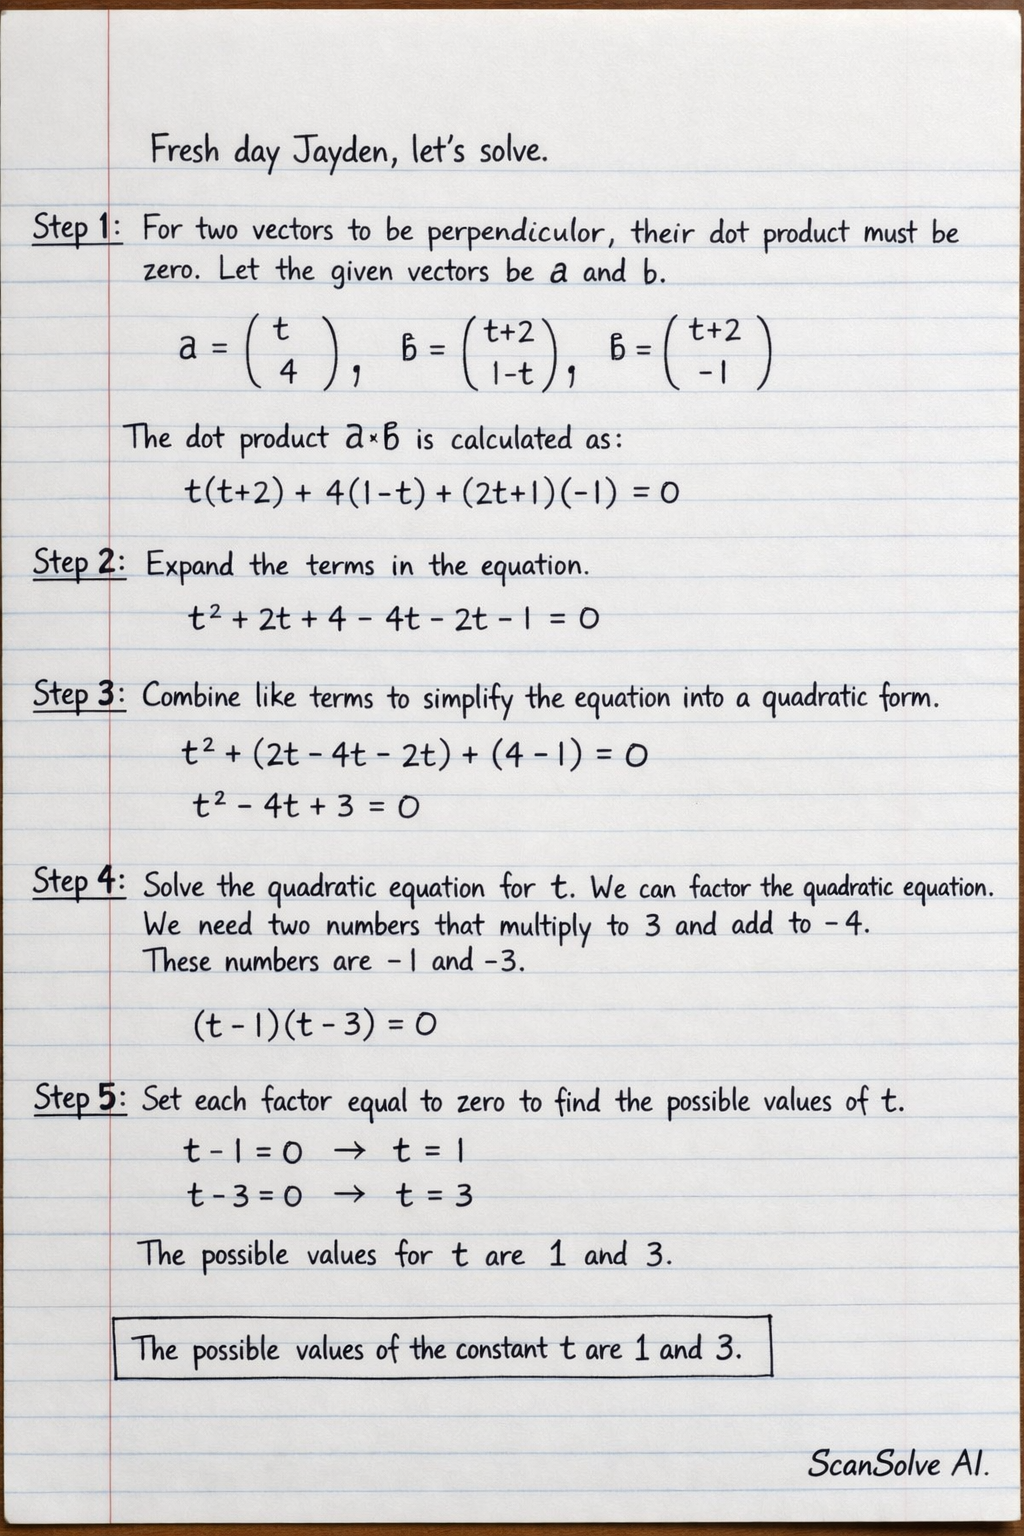 Fresh day Jayden, let's solve.
Step 1: For two vectors to be perpendiculor, their dot product must be
zero. Let the given vectors be a and b.
a = ( t 4 ), ƃ = ( t+2 1-t ), ƃ = ( t+2 -1 )
The dot product a × ƃ is calculated as:
t(t+2) + 4(1-t) + (2t+1)(-1) = 0
Step 2: Expand the terms in the equation.
t² + 2t + 4 - 4t - 2t - 1 = 0
Step 3: Combine like terms to simplify the equation into a quadratic form.
t² + (2t - 4t - 2t) + (4 - 1) = 0
t² - 4t + 3 = 0
Step 4: Solve the quadratic equation for t. We can factor the quadratic equation.
We need two numbers that multiply to 3 and add to -4.
These numbers are -1 and -3.
(t - 1)(t - 3) = 0
Step 5: Set each factor equal to zero to find the possible values of t.
t - 1 = 0 → t = 1
t - 3 = 0 → t = 3
The possible values for t are 1 and 3.
The possible values of the constant t are 1 and 3.
ScanSolve AI.